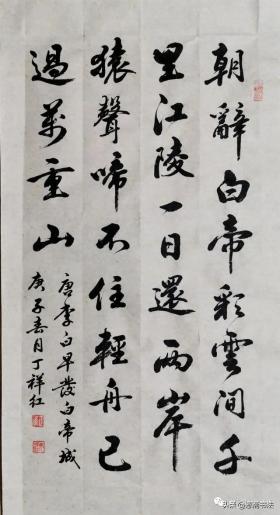 朝辭白帝彩雲間千
里江陵一日還兩岸
猿聲啼不住輕舟已
過萬重山
唐李白早發白帝城
庚子春月丁祥红